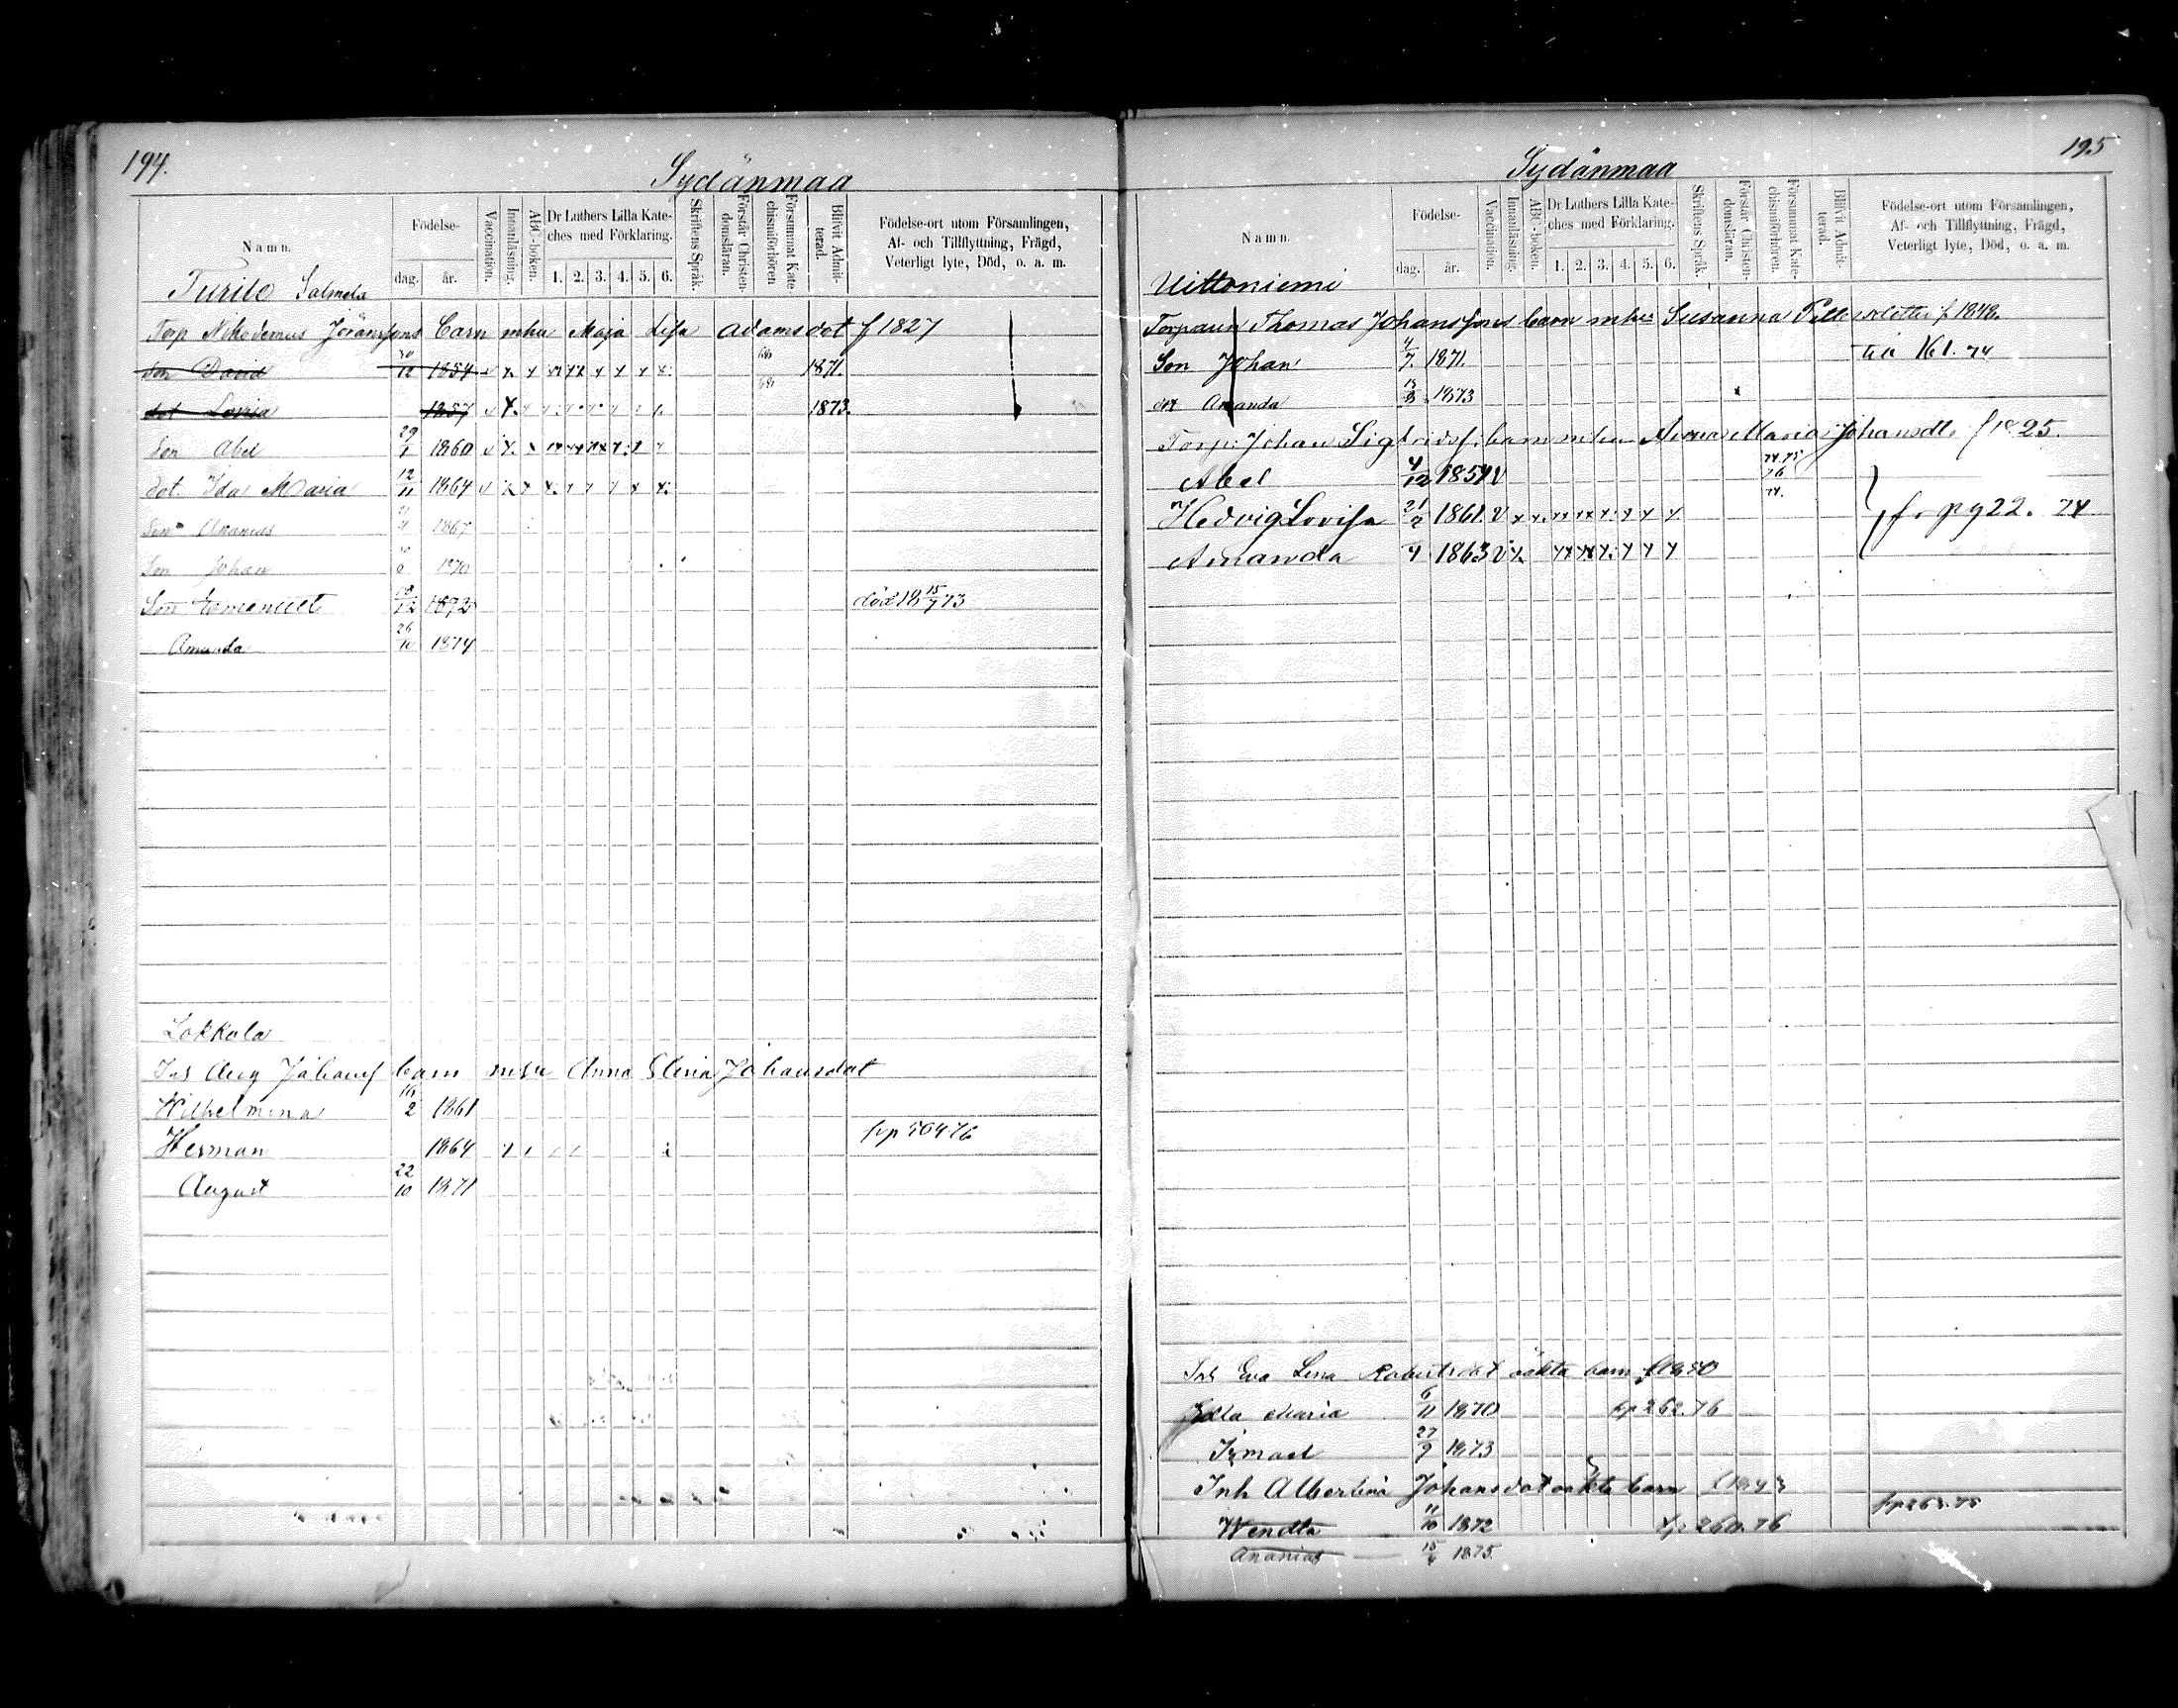 194.
Sydänmaa
Namn.
Födelse-
dag.
år.
Vaccination.
Innanläsning.
ABC-boken.
Dr Luthers Lilla Kate-
ches med Förklaring.
1. 2. 3. 4. 5. 6.
Skriftens Språk.
Förstår Christen-
domsläran.
Försummat Kate-
chismiförhören
Blifvit Admit-
terad.
Födelse-ort utom Församlingen,
Af- och Tillflyttning, Frägd,
Veterligt lyte, Död, o. a. m.
Salmela
Torp Nikodemus Jöranssons barn mhu Maja Lisa Adamsdot f 1827
Son David 30/12 1854 1871.
dot Lovisa 1857 1873.
Son Abel 1860
dot. Ida Maria 12/11 1864
Son Ananias 1867
Son Johan 1870
Son Emanuel 1872 död 18 15/7 73
Amanda 26/10 1874
Lokkola
Inh Aug Johans barn mhu Anna Johansdot
Wilhelmina 16/2 1861
Herman 1864
August 22/10 1871
195
Sydänmaa
Namn.
Födelse-
dag.
år.
Vaccination.
Innanläsning.
ABC-boken.
Dr Luthers Lilla Kate-
ches med Förklaring.
1. 2. 3. 4. 5. 6.
Skriftens Språk.
Förstår Christen-
domsläran.
Försummat Kate-
chismiförhören.
Blifvit Admit-
terad.
Födelse-ort utom Församlingen,
Af- och Tillflyttning, Frägd,
Veterligt lyte, Död, o. a. m.
Uittoniemi
Torparen Thomas Johanssons barn mhu Susanna f 1848.
Son Johan 4/7. 1871. 161. 74
dot Amanda 1873
Torp. Johan Sigfridsf. barn mhu Anna Maria Johansdt. f 1825.
Abel 4/12 185 74.75 76
Hedvig Lovisa 21/2 1861. 74. fr pg 22. 74
Amanda 4 1863
Inh Eva Lena Robertsdot oäkta barn
Maria 6/11 1870 262.76
Ismael 27/9 1873
Inh Albertina Johansdot oäkta barn
Wendla 11/10 1872 76
Ananias 1875.